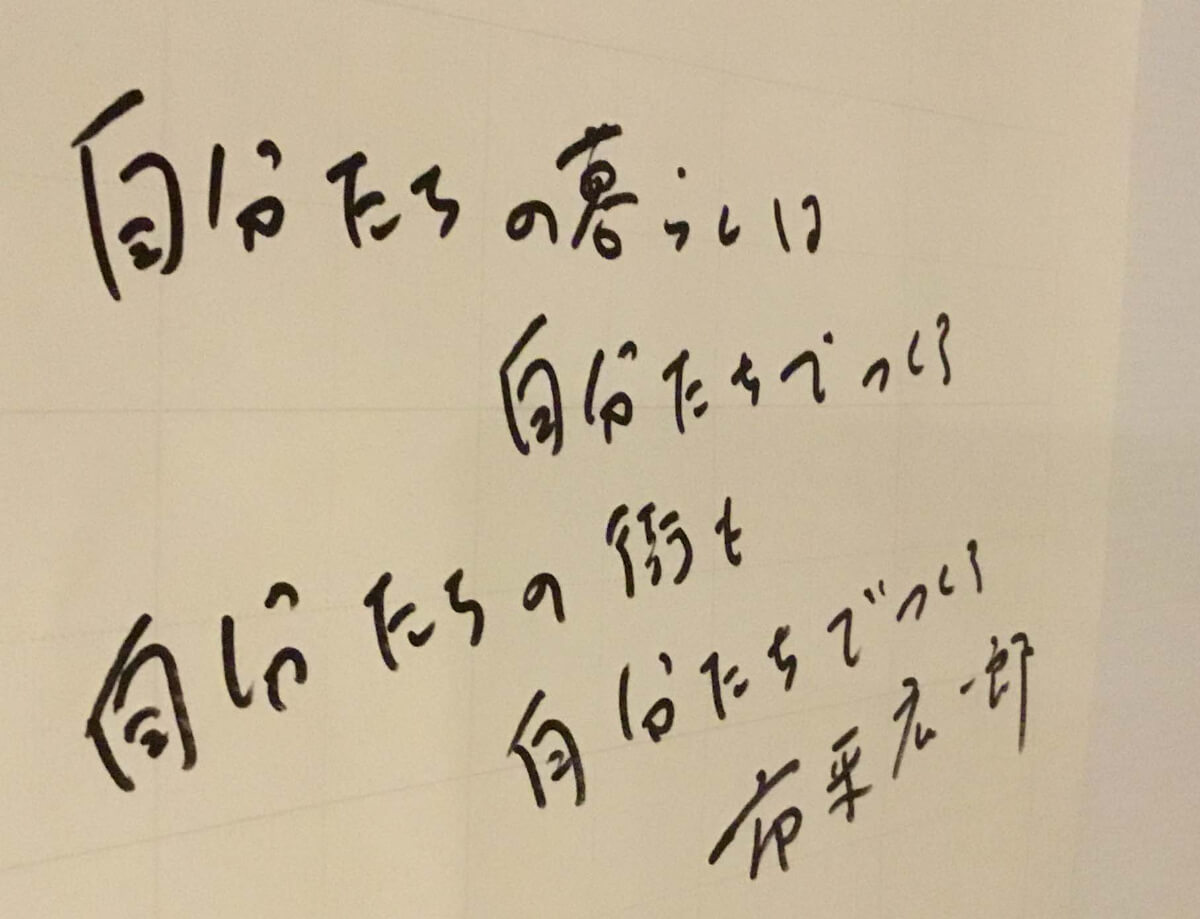 自分たちの暮らしは
自分たちでつくる
自分たちの街も
自分たちでつくる
市来広一郎